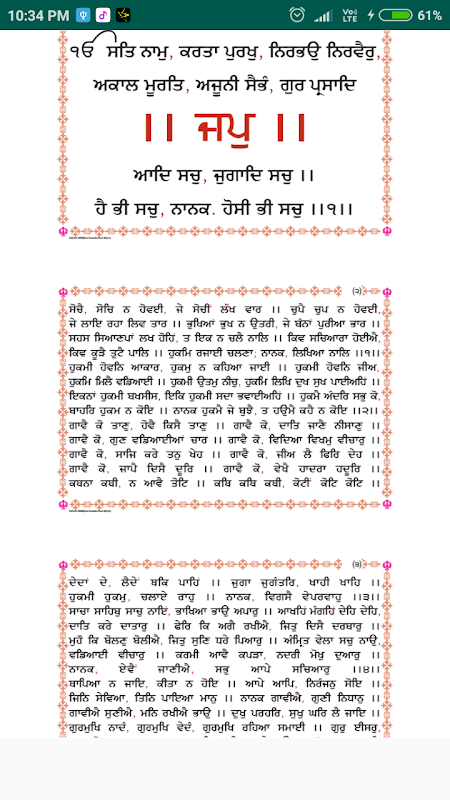 10:34 PM VoLTE 61%
ੴ ਸਤਿ ਨਾਮੁ, ਕਰਤਾ ਪੁਰਖੁ, ਨਿਰਭਉ ਨਿਰਵੈਰੁ,
ਅਕਾਲ ਮੂਰਤਿ, ਅਜੂਨੀ ਸੈਭੰ, ਗੁਰ ਪ੍ਰਸਾਦਿ
।। ਜਪੁ ।।
ਆਦਿ ਸਚੁ, ਜੁਗਾਦਿ ਸਚੁ ।।
ਹੈ ਭੀ ਸਚੁ, ਨਾਨਕ. ਹੋਸੀ ਭੀ ਸਚੁ ।।੧।।
(੨)
ਸੋਚੈ, ਸੋਚਿ ਨ ਹੋਵਈ, ਜੇ ਸੋਚੀਂ ਲੱਖ ਵਾਰ ।। ਚੁਪੈ ਚੁਪ ਨ ਹੋਵਈ,
ਜੇ ਲਾਇ ਰਹਾ ਲਿਵ ਤਾਰ ।। ਭੁਖਿਆਂ ਭੁਖ ਨ ਉਤਰੀ, ਜੇ ਬੰਨਾਂ ਪੁਰੀਆ ਭਾਰ ।।
ਸਹਸ ਸਿਆਣਪਾਂ ਲਖ ਹੋਹਿ, ਤ ਇਕ ਨ ਚਲੈ ਨਾਲਿ ।। ਕਿਵ ਸਚਿਆਰਾ ਹੋਈਐ,
ਕਿਵ ਕੂੜੈ ਤੁਟੈ ਪਾਲਿ ।। ਹੁਕਮਿ ਰਜਾਈ ਚਲਣਾ; ਨਾਨਕ, ਲਿਖਿਆ ਨਾਲਿ ।।੧।।
ਹੁਕਮੀ ਹੋਵਨਿ ਆਕਾਰ, ਹੁਕਮੁ ਨ ਕਹਿਆ ਜਾਈ ।। ਹੁਕਮੀ ਹੋਵਨਿ ਜੀਅ,
ਹੁਕਮਿ ਮਿਲੈ ਵਡਿਆਈ ।। ਹੁਕਮੀ ਉਤਮੁ ਨੀਚੁ, ਹੁਕਮਿ ਲਿਖਿ ਦੁਖ ਸੁਖ ਪਾਈਅਹਿਂ ।।
ਇਕਨਾਂ ਹੁਕਮੀ ਬਖਸੀਸ, ਇਕਿ ਹੁਕਮੀ ਸਦਾ ਭਵਾਈਅਹਿਂ ।। ਹੁਕਮੈ ਅੰਦਰਿ ਸਭੁ ਕੋ,
ਬਾਹਰਿ ਹੁਕਮ ਨ ਕੋਇ ।। ਨਾਨਕ ਹੁਕਮੈ ਜੇ ਬੁਝੈ, ਤ ਹਉਮੈ ਕਹੈ ਨ ਕੋਇ ।।੨।।
ਗਾਵੈ ਕੋ ਤਾਣੁ, ਹੋਵੈ ਕਿਸੈ ਤਾਣੁ ।। ਗਾਵੈ ਕੋ, ਦਾਤਿ ਜਾਣੈ ਨੀਸਾਣੁ ।।
ਗਾਵੈ ਕੋ, ਗੁਣ ਵਡਿਆਈਆਂ ਚਾਰ ।। ਗਾਵੈ ਕੋ, ਵਿਦਿਆ ਵਿਖਮੁ ਵੀਚਾਰੁ ।।
ਗਾਵੈ ਕੋ, ਸਾਜਿ ਕਰੇ ਤਨੁ ਖੇਹ ।। ਗਾਵੈ ਕੋ, ਜੀਅ ਲੈ ਫਿਰਿ ਦੇਹ ।।
ਗਾਵੈ ਕੋ, ਜਾਪੈ ਦਿਸੈ ਦੂਰਿ ।। ਗਾਵੈ ਕੋ, ਵੇਖੈ ਹਾਦਰਾ ਹਦੂਰਿ ।।
ਕਥਨਾ ਕਥੀ, ਨ ਆਵੈ ਤੋਟਿ ।। ਕਥਿ ਕਥਿ ਕਥੀ, ਕੋਟੀਂ ਕੋਟਿ ਕੋਟਿ ।।
(੩)
ਦੇਦਾਂ ਦੇ, ਲੈਦੇਂ ਥਕਿ ਪਾਹਿਂ ।। ਜੁਗਾ ਜੁਗੰਤਰਿ, ਖਾਹੀ ਖਾਹਿ ।।
ਹੁਕਮੀ ਹੁਕਮੁ, ਚਲਾਏ ਰਾਹੁ ।। ਨਾਨਕ, ਵਿਗਸੈ ਵੇਪਰਵਾਹੁ ।।੩।।
ਸਾਚਾ ਸਾਹਿਬੁ ਸਾਚੁ ਨਾਇਂ, ਭਾਖਿਆ ਭਾਉ ਅਪਾਰੁ ।। ਆਖਹਿਂ ਮੰਗਹਿਂ ਦੇਹਿ ਦੇਹਿ,
ਦਾਤਿ ਕਰੇ ਦਾਤਾਰੁ ।। ਫੇਰਿ ਕਿ ਅਗੈ ਰਖੀਐ, ਜਿਤੁ ਦਿਸੈ ਦਰਬਾਰੁ ।।
ਮੁਹੌਂ ਕਿ ਬੋਲਣੁ ਬੋਲੀਐ, ਜਿਤੁ ਸੁਣਿ ਧਰੇ ਪਿਆਰੁ ।। ਅੰਮ੍ਰਿਤ ਵੇਲਾ ਸਚੁ ਨਾਉ,
ਵਡਿਆਈ ਵੀਚਾਰੁ ।। ਕਰਮੀ ਆਵੈ ਕਪੜਾ, ਨਦਰੀ ਮੋਖੁ ਦੁਆਰੁ ।।
ਨਾਨਕ, ਏਵੈਂ ਜਾਣੀਐ, ਸਭੁ ਆਪੇ ਸਚਿਆਰੁ ।।੪।।
ਥਾਪਿਆ ਨ ਜਾਇ, ਕੀਤਾ ਨ ਹੋਇ ।। ਆਪੇ ਆਪਿ, ਨਿਰੰਜਨੁ ਸੋਇ ।।
ਜਿਨਿ ਸੇਵਿਆ, ਤਿਨਿ ਪਾਇਆ ਮਾਨੁ ।। ਨਾਨਕ ਗਾਵੀਐ, ਗੁਣੀ ਨਿਧਾਨੁ ।।
ਗਾਵੀਐ ਸੁਣੀਐ, ਮਨਿ ਰਖੀਐ ਭਾਉ ।। ਦੁਖੁ ਪਰਹਰਿ, ਸੁਖੁ ਘਰਿ ਲੈ ਜਾਇ ।।
ਗੁਰਮੁਖਿ ਨਾਦੰ, ਗੁਰਮੁਖਿ ਵੇਦੰ, ਗੁਰਮੁਖਿ ਰਹਿਆ ਸਮਾਈ ।। ਗੁਰੁ ਈਸਰੁ,